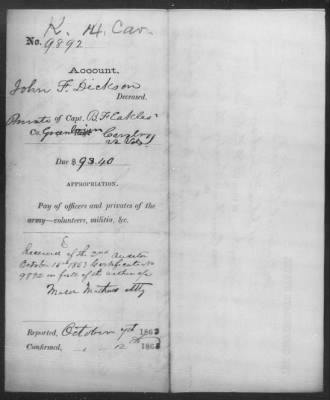 K. 14. Cav.
No. 9892
Account.
John F. Dickson
Deceased.
Private of Capt. B F Eakles
Co. Cavalry
Va Vols
Due $93.40
APPROPRIATION.
Pay of officers and privates of the
army—volunteers, militia, &c.
Received of the 2nd Auditor
October 16th 1863 Certificate No
9892 in full of the within a/c
Atty
Reported, October 7th 1863
Confirmed, " 12th 1863